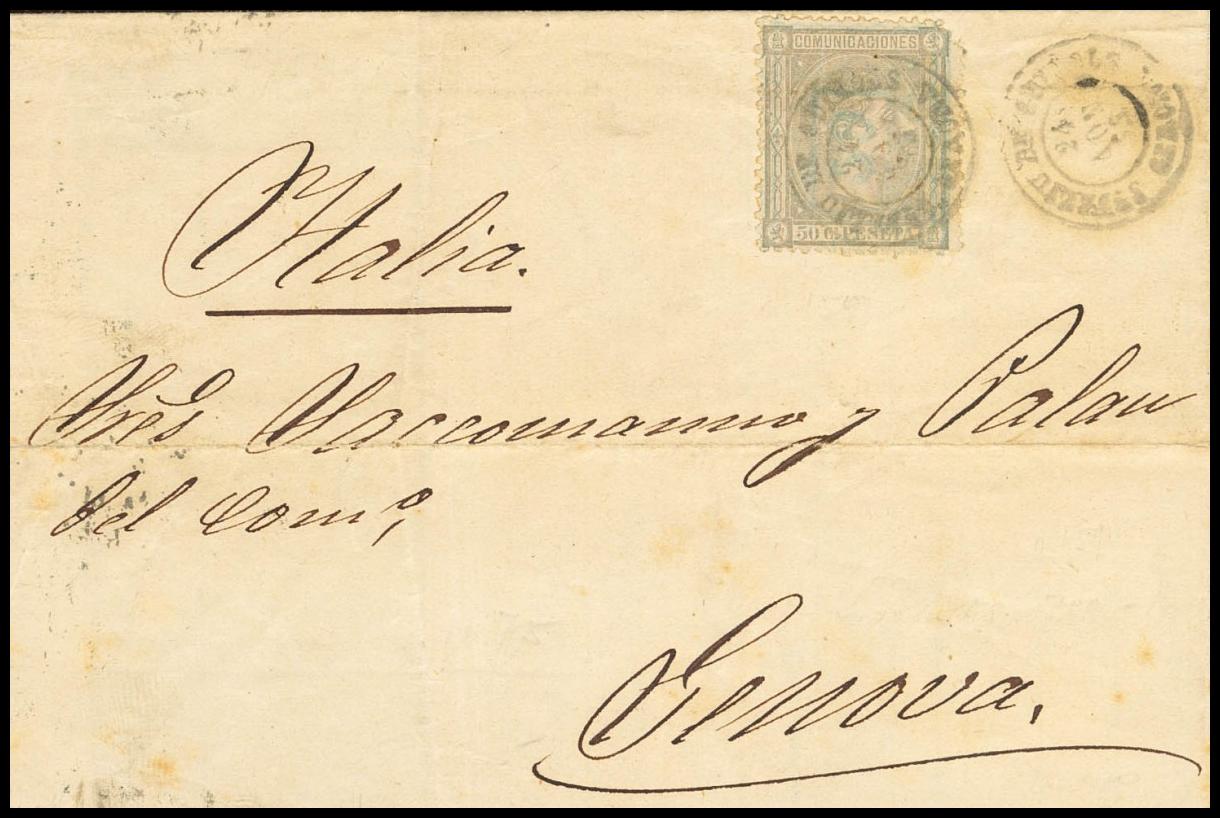 COMUNICACIONES
50 Cs PESETA
Italia.
Vaccomanno y Palau
del Comº,
Genova.